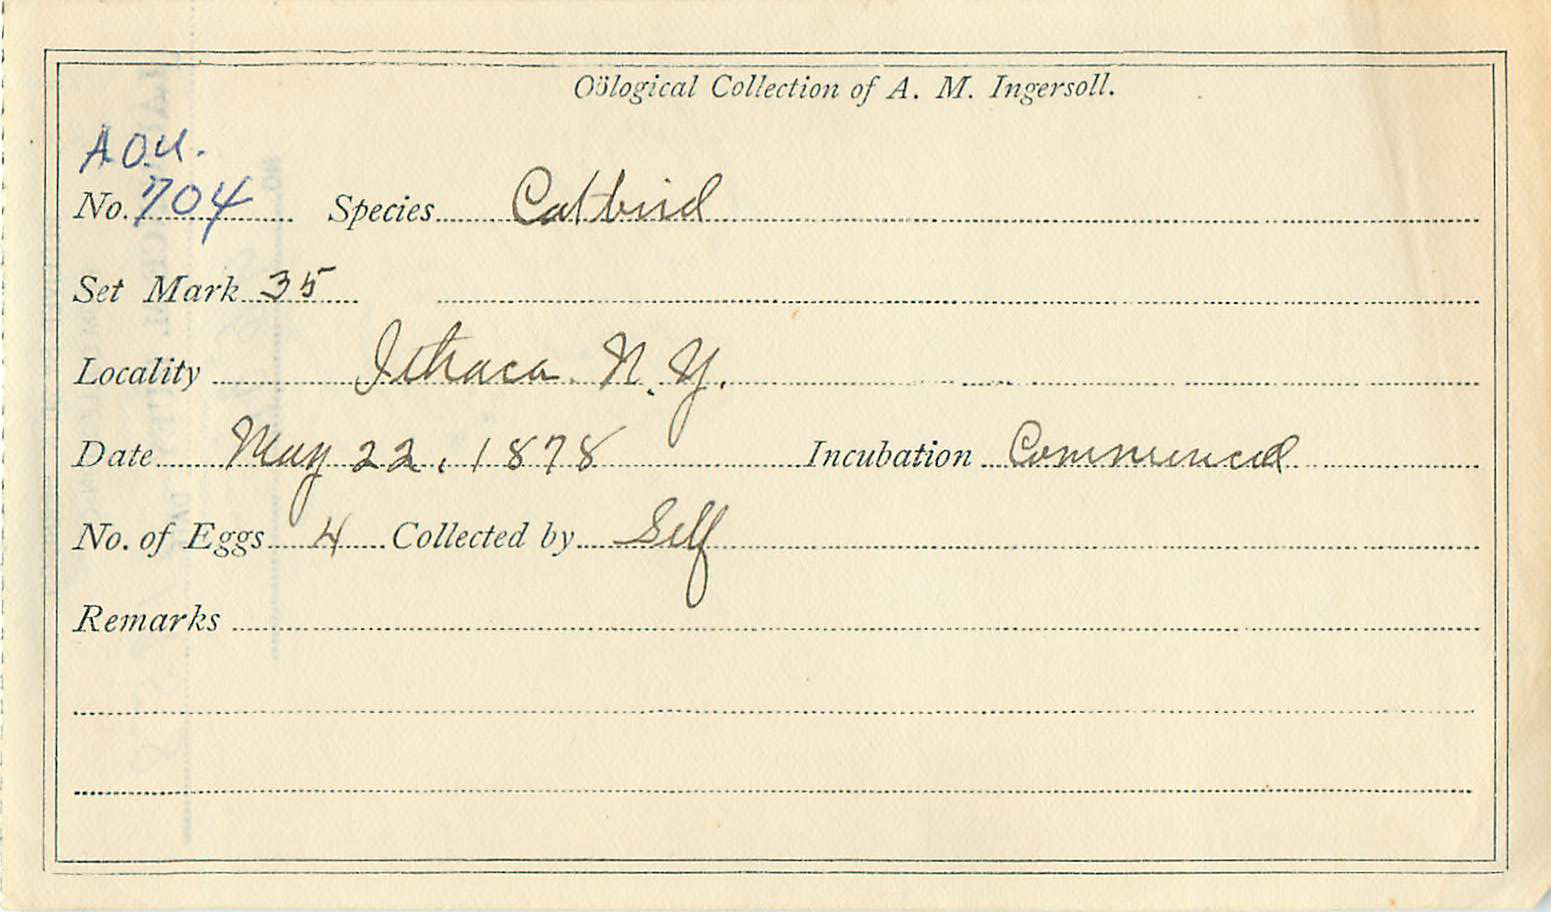 Oölogical Collection of A. M. Ingersoll.
A.O.U.
No. 704 Species Catbird
Set Mark 35
Locality Ithaca. N. Y.
Date May 22, 1878 Incubation Commenced
No. of Eggs 4 Collected by Self
Remarks